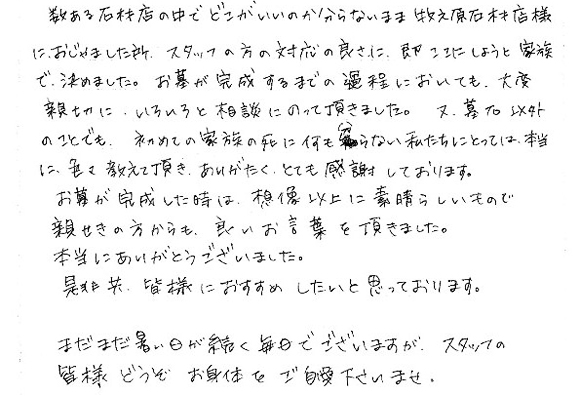 数ある石材店の中でどこがいいのか分らないまま牧之原石材店様
に、おじゃました所、スタッフの方の対応の良さに、即ここにしようと家族
で、決めました。お墓が完成するまでの過程においても、大変
親切に、いろいろと相談にのって頂きました。又、墓石以外
のことでも、初めての家族の死に何も分らない私たちにとっては、本当
に、色々教えて頂き、ありがたく、とても感謝しております。
お墓が完成した時は、想像以上に素晴らしいもので
親せきの方からも、良いお言葉を頂きました。
本当にありがとうございました。
是非共、皆様におすすめしたいと思っております。
まだまだ暑い日が続く毎日でございますが、スタッフの
皆様どうぞお身体をご自愛下さいませ。